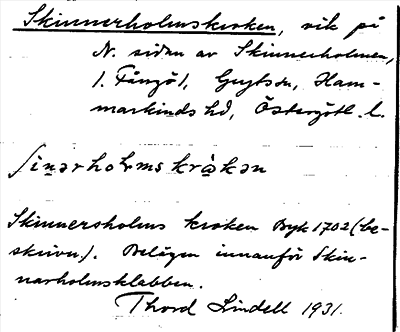 Skinnerholmskroken, vik på
N. sidan av Skinnerholmen,
i. Fångö i, Gryts sn, Ham-
markinds hd, Östergötl. l.
ʃinərholmskrɑ̀kən
Skinnersholms kroken Byk 1702 (be-
skrivn.). Belägen innanför Skin-
narholmsklabben.
Thord Lindell 1931.